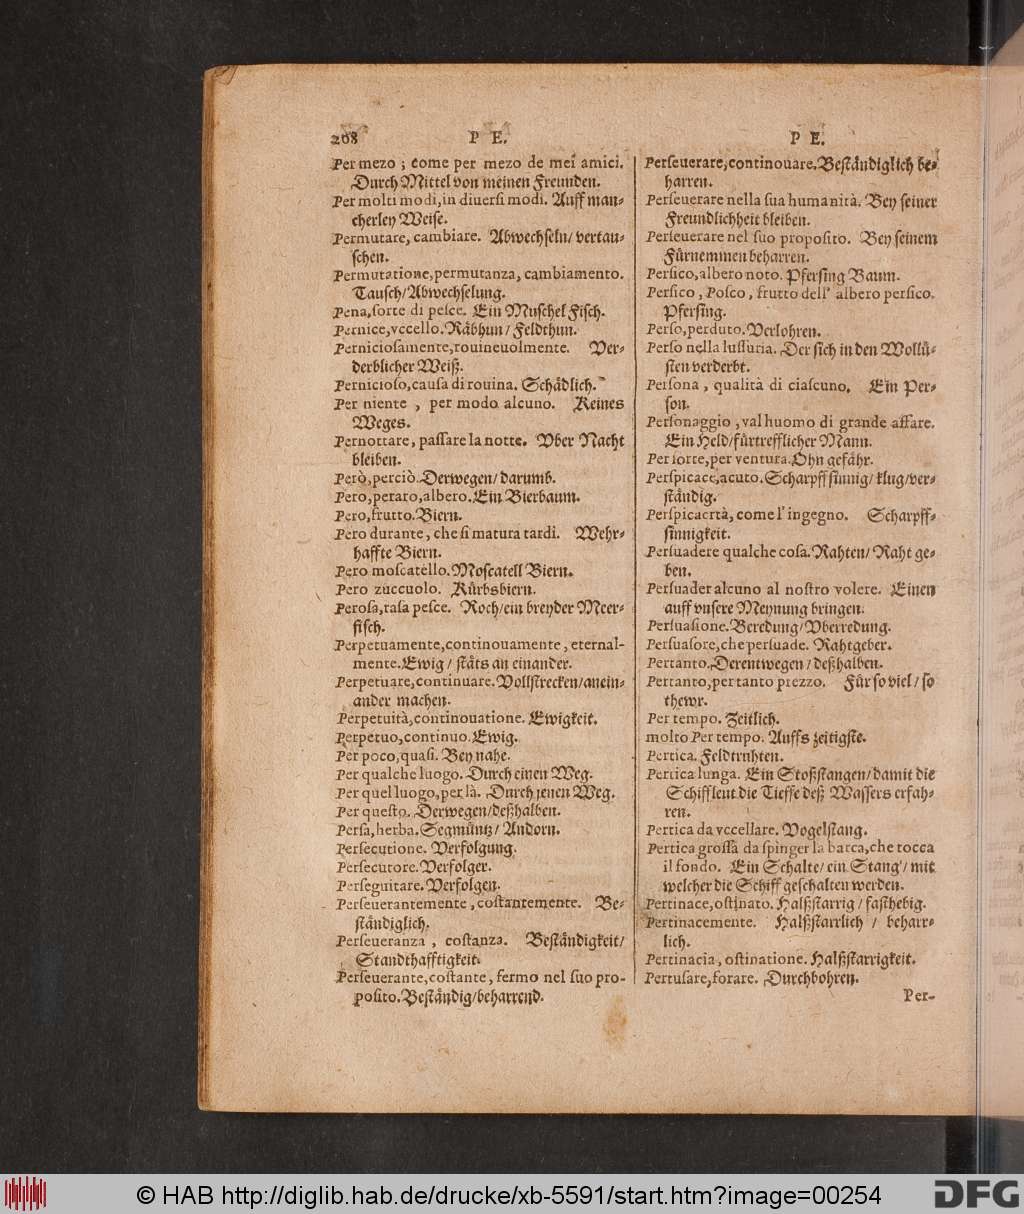 208 P E.
Per mezo ; come per mezo de mei amici.
Durch Mittel von meinen Freunden.
Per molti modi, in diuersi modi. Auff man-
cherley Weise.
Permutare, cambiare. Abwechseln/ vertau-
schen.
Permutatione, permutanza, cambiamento.
Tausch/ Abwechselung.
Pena, sorte di pesce. Ein Muschel Fisch.
Pernice, vccello. Råbhun / Feldthun.
Perniciosamente, rouineuolmente. Ver-
derblicher Weiß.
Pernicioso, causa di rouina. Schådlich.
Per niente , per modo alcuno. Keines
Weges.
Pernottare, passare la notte. Vber Nacht
bleiben.
Però, perciò. Derwegen/ darumb.
Pero, peraro, albero. Ein Bierbaum.
Pero, frutto. Biern.
Pero durante, che si matura tardi. Wehr-
haffte Biern.
Pero moscatello. Moscatell Biern.
Pero zuccuolo. Kůrbsbiern.
Perosa, rasa pesce. Roch/ ein breyder Meer-
fisch.
Perpetuamente, continouamente , eternal-
mente. Ewig / ståts an einander.
Perpetuare, continuare. Vollstrecken/ anein-
ander machen.
Perpetuità, continouatione. Ewigkeit.
Perpetuo, continuo. Ewig.
Per poco, quasi. Bey nahe.
Per qualche luogo. Durch einen Weg.
Per quel luogo, per là. Durch jenen Weg.
Per questo. Derwegen/ deßhalben.
Persa, herba. Segmůntz / Andorn.
Persecutione. Verfolgung.
Persecutore. Verfolger.
Perseguitare. Verfolgen.
Perseuerantemente , costantemente. Be-
ståndiglich.
Perseueranza , costanza. Beståndigkeit/
Standthafftigkeit.
Perseuerante, costante , fermo nel suo pro-
posito. Beståndig/ beharrend.
P E.
Perseuerare, continouare. Beståndiglich be-
harren.
Perseuerare nella sua humanità. Bey seiner
Freundlichheit bleiben.
Perseuerare nel suo proposito. Bey seinem
Fůrnemmen beharren.
Persico, albero noto. Pfersing Baum.
Persico , Posco , frutto dell' albero persico.
Pfersing.
Perso, perduto. Verlohren.
Perso nella lussuria. Der sich in den Wollů-
sten verderbt.
Persona , qualità di ciascuno. Ein Per-
son.
Personaggio , val huomo di grande affare.
Ein Held/ fůrtrefflicher Mann.
Per sorte, per ventura. Ohn gefåhr.
Perspicace, acuto. Scharpffsinnig/ klug/ ver-
ståndig.
Perspicacità, come l' ingegno. Scharpff-
sinnigkeit.
Persuadere qualche cosa. Rahten/ Raht ge-
ben.
Persuader alcuno al nostro volere. Einen
auff vnsere Meynung bringen.
Persuasione. Beredung/ Vberredung.
Persuasore, che persuade. Rahtgeber.
Pertanto. Derentwegen / deßhalben.
Pertanto, per tanto prezzo. Fůr so viel / so
thewr.
Per tempo. Zeitlich.
molto Per tempo. Auffs zeitigste.
Pertica. Feldtruhten.
Pertica lunga. Ein Stoßstangen/ damit die
Schiffleut die Tieffe deß Wassers erfah-
ren.
Pertica da vccellare. Vogelstang.
Pertica grossa da spinger la barca, che tocca
il fondo. Ein Schalte/ ein Stang / mit
welcher die Schiff geschalten werden.
Pertinace, ostinato. Halßstarrig / fasthebig.
Pertinacemente. Halßstarrlich / beharr-
lich.
Pertinacia, ostinatione. Halßstarrigkeit.
Pertusare, forare. Durchbohren.
Per-
© HAB http://diglib.hab.de/drucke/xb-5591/start.htm?image=00254
DFG